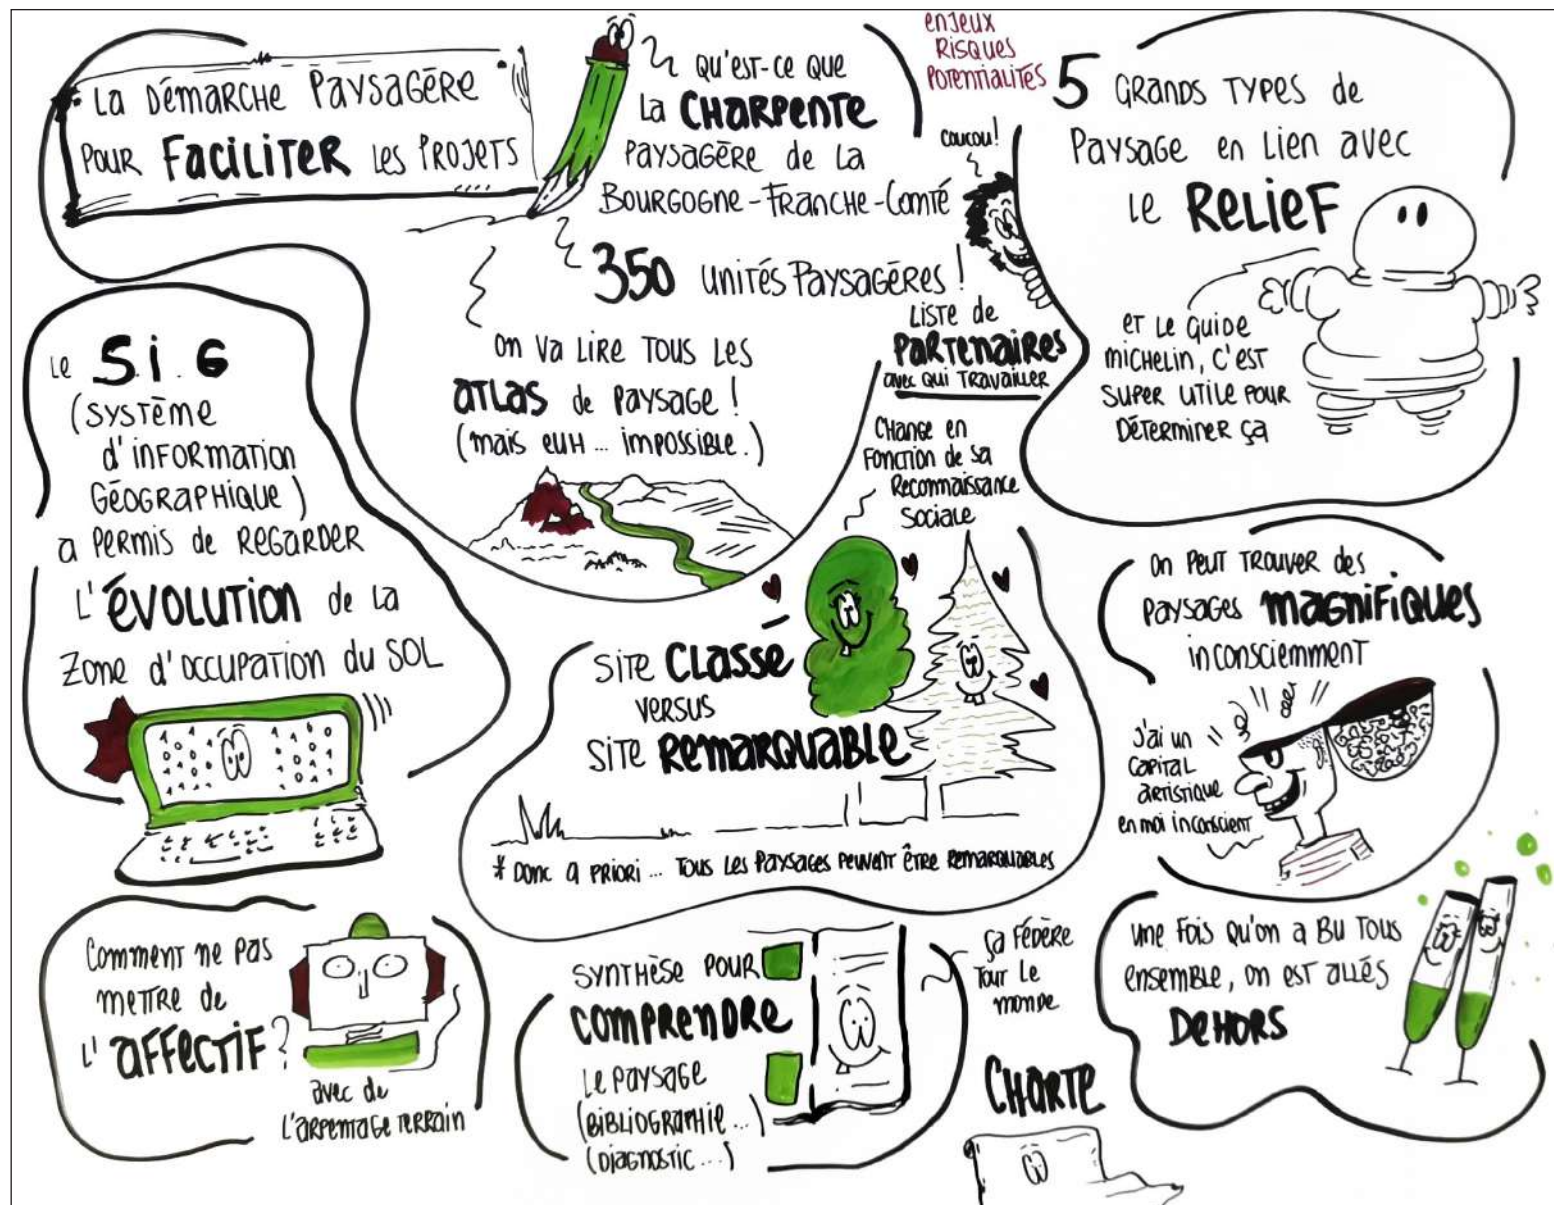 La Démarche Paysagère
pour Faciliter les projets
qu'est-ce que
la charpente
paysagère de la
Bourgogne-Franche-Comté
350 unités paysagères !
on va lire tous les
atlas de paysage !
(mais euh ... impossible.)
enjeux
risques
potentialités
coucou !
liste de
partenaires
avec qui travailler
5 grands types de
paysage en lien avec
le relief
et le guide
michelin, c'est
super utile pour
déterminer ça
le S.i.G
(système
d'information
géographique)
a permis de regarder
l'évolution de la
zone d'occupation du sol
change en
fonction de sa
reconnaissance
sociale
site classé
versus
site remarquable
* Donc a priori ... tous les paysages peuvent être remarquables
on peut trouver des
paysages magnifiques
inconsciemment
j'ai un
capital
artistique
en moi inconscient
Comment ne pas
mettre de
l'affectif ?
avec de
l'arpentage terrain
synthèse pour
comprendre
le paysage
(bibliographie ...)
(diagnostic ...)
ça fédère
tout le
monde
Charte
une fois qu'on a bu tous
ensemble, on est allés
dehors